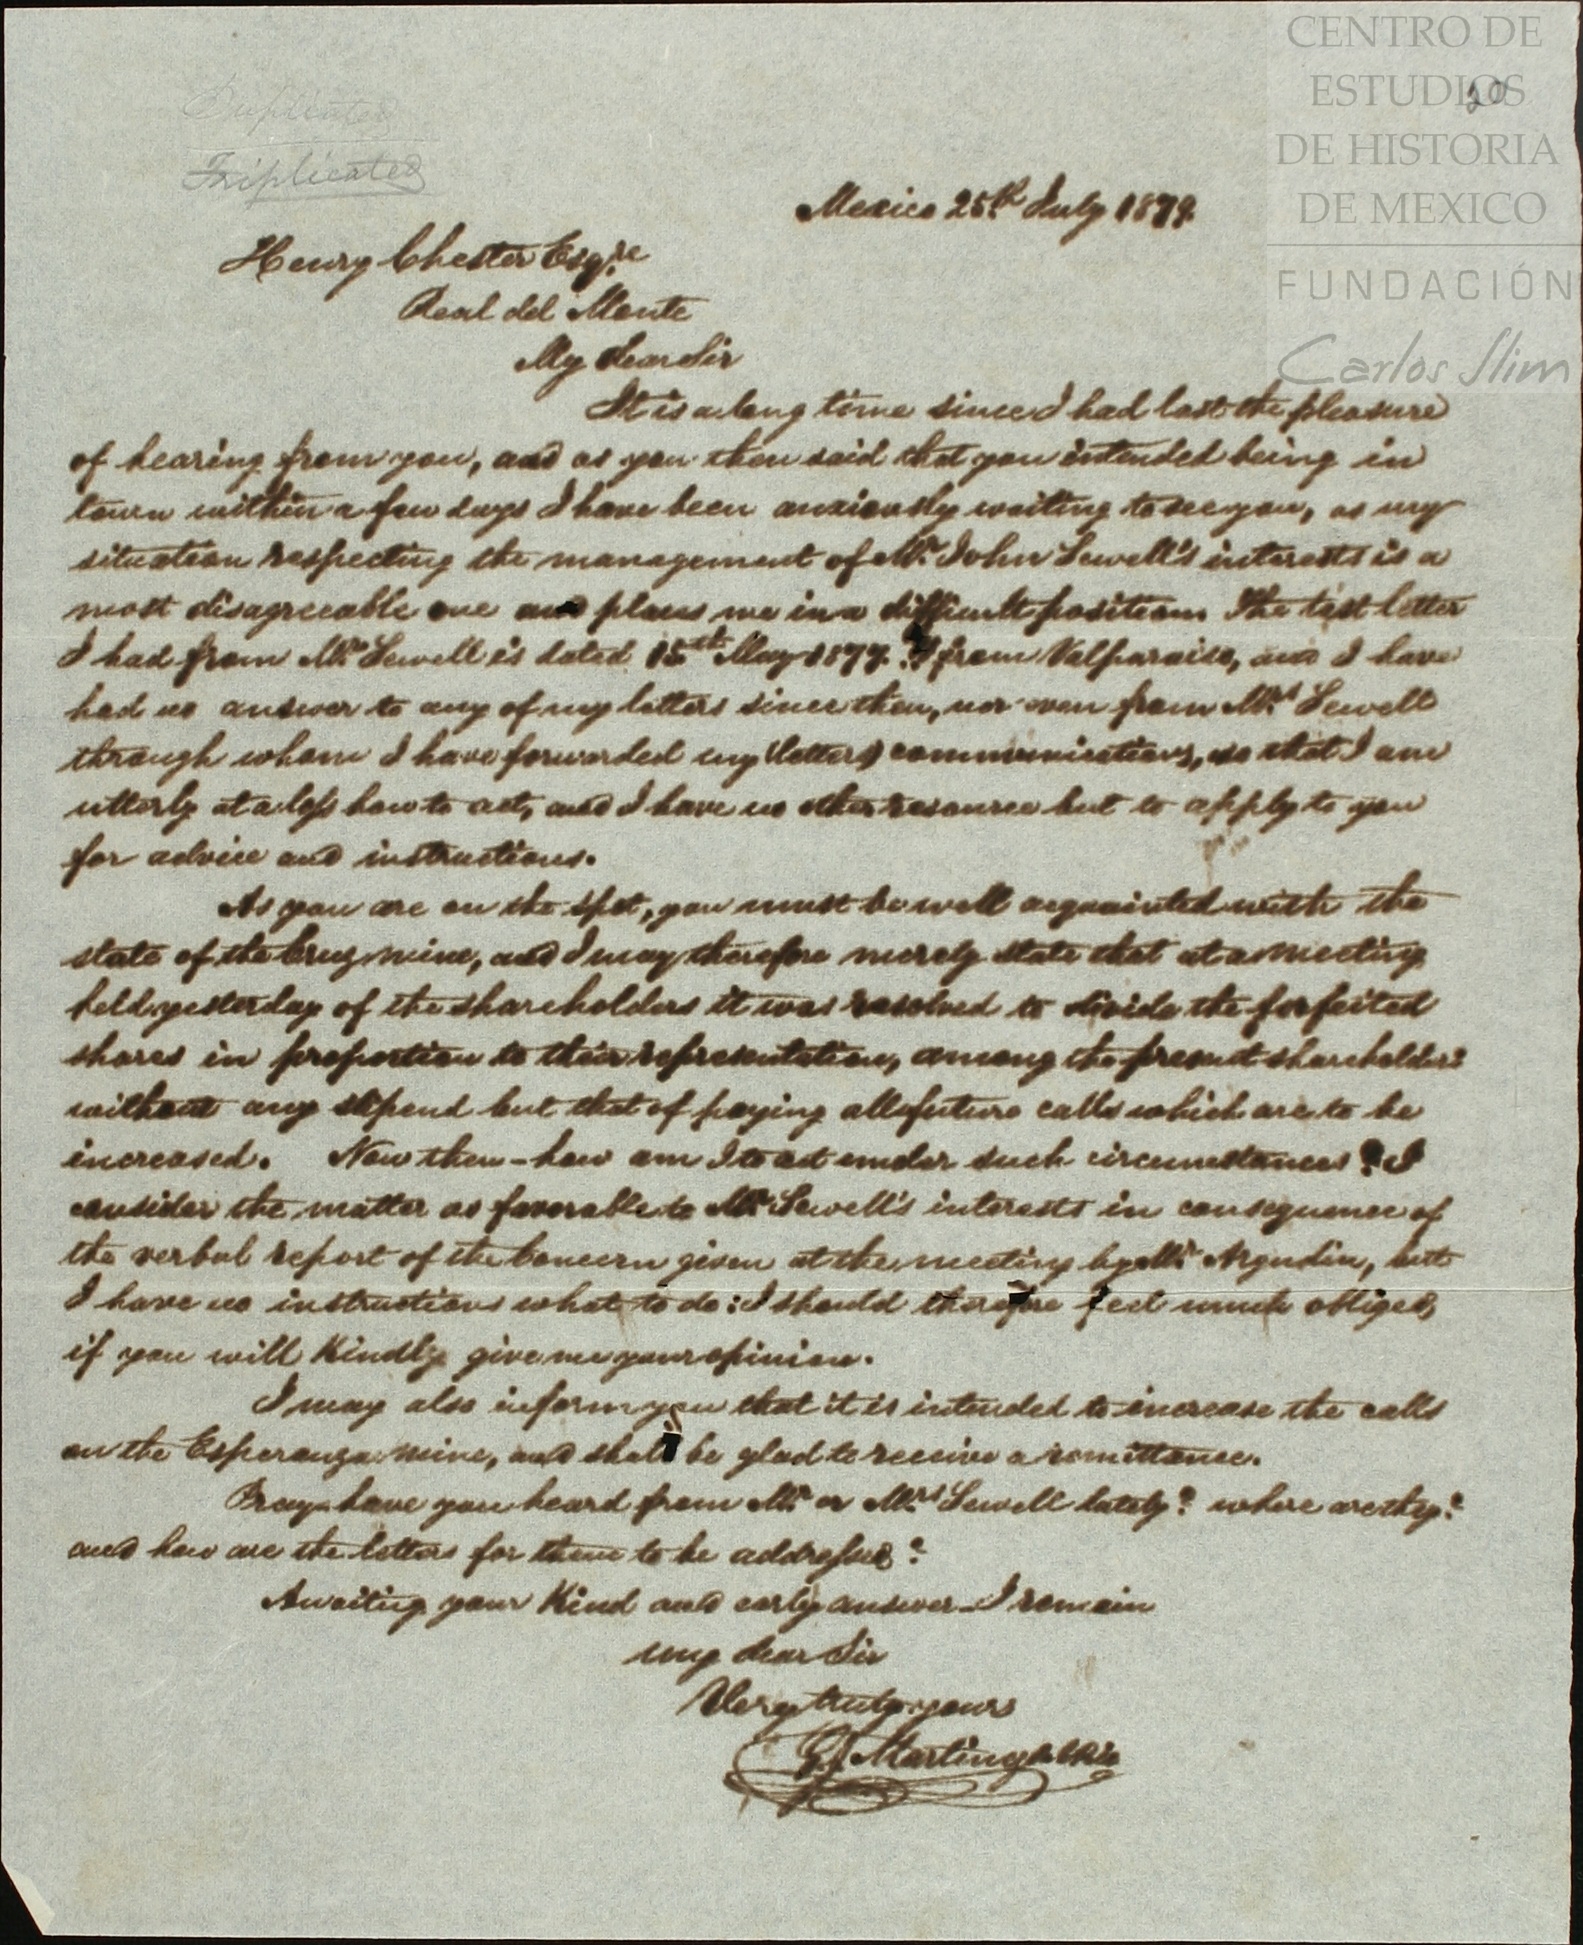 CENTRO DE
ESTUDIOS
DE HISTORIA
DE MEXICO
FUNDACIÓN
Carlos Slim
20
Duplicated
Triplicated
Mexico 25th July 1879.
Henry Chester Esqre
Real del Monte
My dear Sir
It is a long time since I had last the pleasure
of hearing from you, and as you then said that you intended being in
town within a few days I have been anxiously waiting to see you, as my
situation respecting the management of Mr. John Sewell's interests is a
most disagreeable one and places me in a difficult position. The last letter
I had from Mr. Sewell is dated 15th May 1877. from Valparaiso, and I have
had no answer to any of my letters since then, nor even from Mrs. Sewell
through whom I have forwarded my (letters) communications, so that I am
utterly at a loss how to act, and I have no other resource but to apply to you
for advice and instructions.
As you are on the spot, you must be well acquainted with the
state of the Cruz mine, and I may therefore merely state that at a meeting
held yesterday of the shareholders it was resolved to divide the forfeited
shares in proportion to their representation, among the present shareholders
without any stipend but that of paying all future calls which are to be
increased. Now then - how am I to act under such circumstances? I
consider the matter as favorable to Mr. Sewell's interests in consequence of
the verbal report of the Concern given at the meeting by Mr. Argudin, but
I have no instructions what to do: I should therefore feel much obliged,
if you will Kindly give me your opinion.
I may also inform you that it is intended to increase the calls
on the Esperanza mine, and shall be glad to receive a remittance.
Pray have you heard from Mr. or Mrs. Sewell lately? where are they?
and how are the letters for them to be addressed?
Awaiting your Kind and early answer - I remain
my dear Sir
Very truly yours